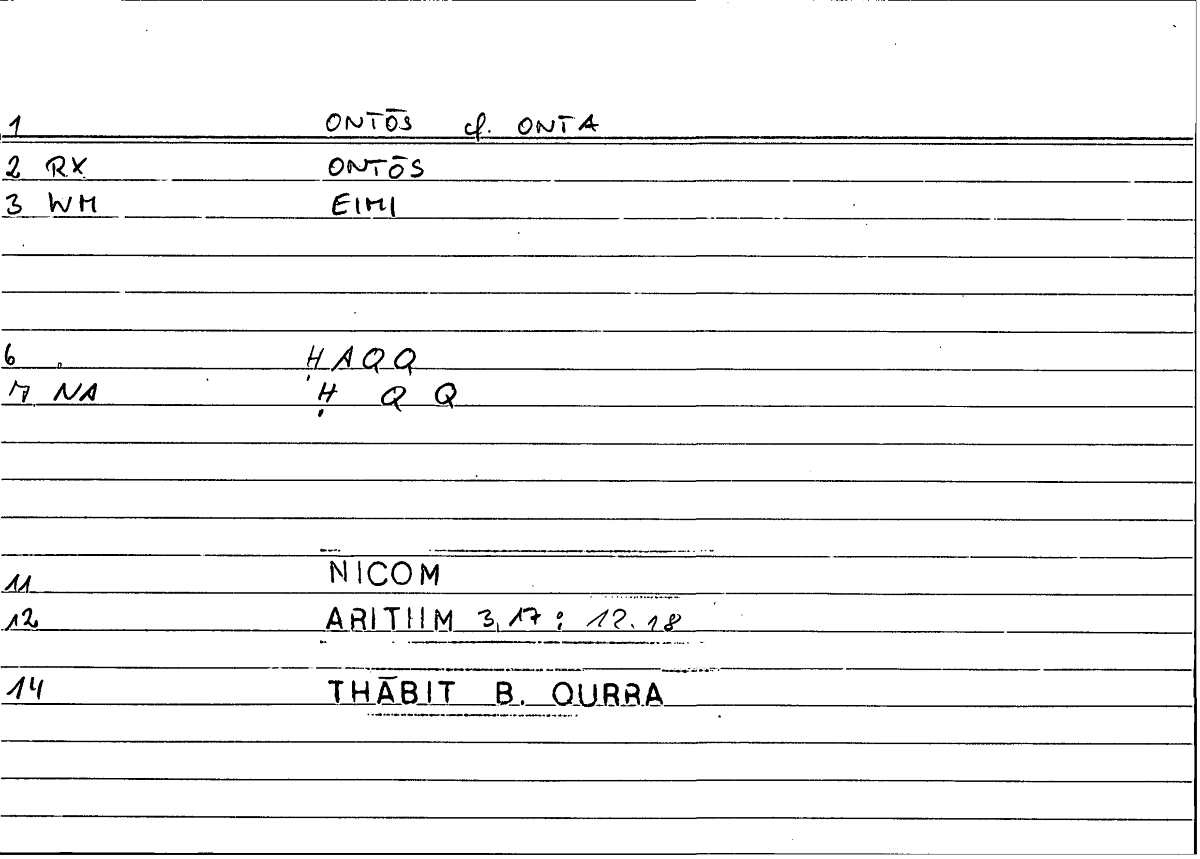 1 ONTŌS cf. ONTA
2 RX ONTŌS
3 WM EIMI
6 ḤAQQ
7 NA Ḥ Q Q
11 NICOM
12 ARITHM 3,17 : 12.18
14 THĀBIT B. QURRA